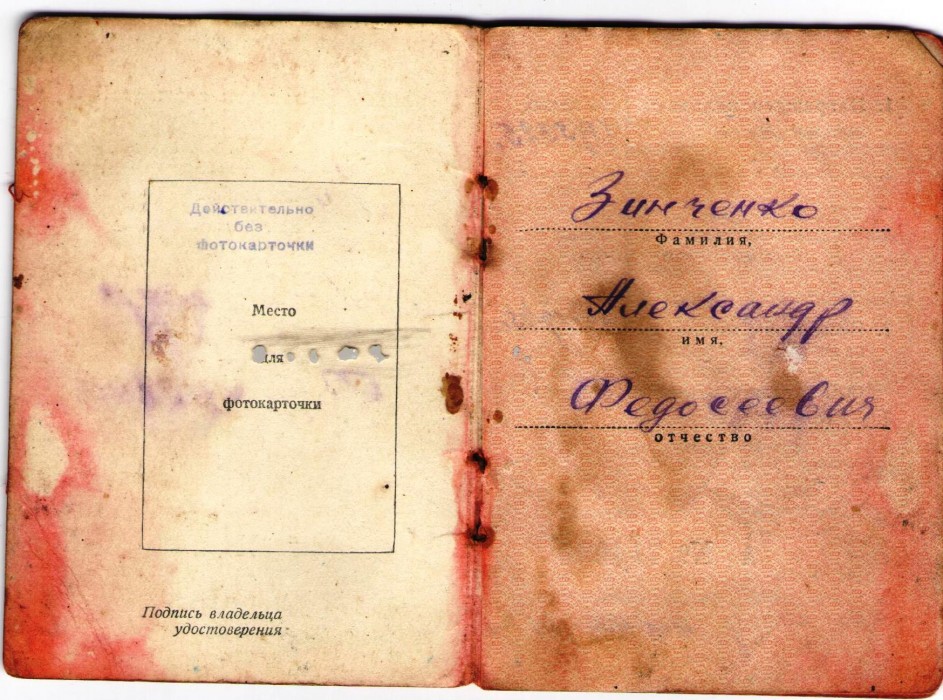 Действительно
без
фотокарточки
Место
для
фотокарточки
Подпись владельца
удостоверения
Зинченко
Фамилия,
Александр
имя,
Федосеевич
отчество